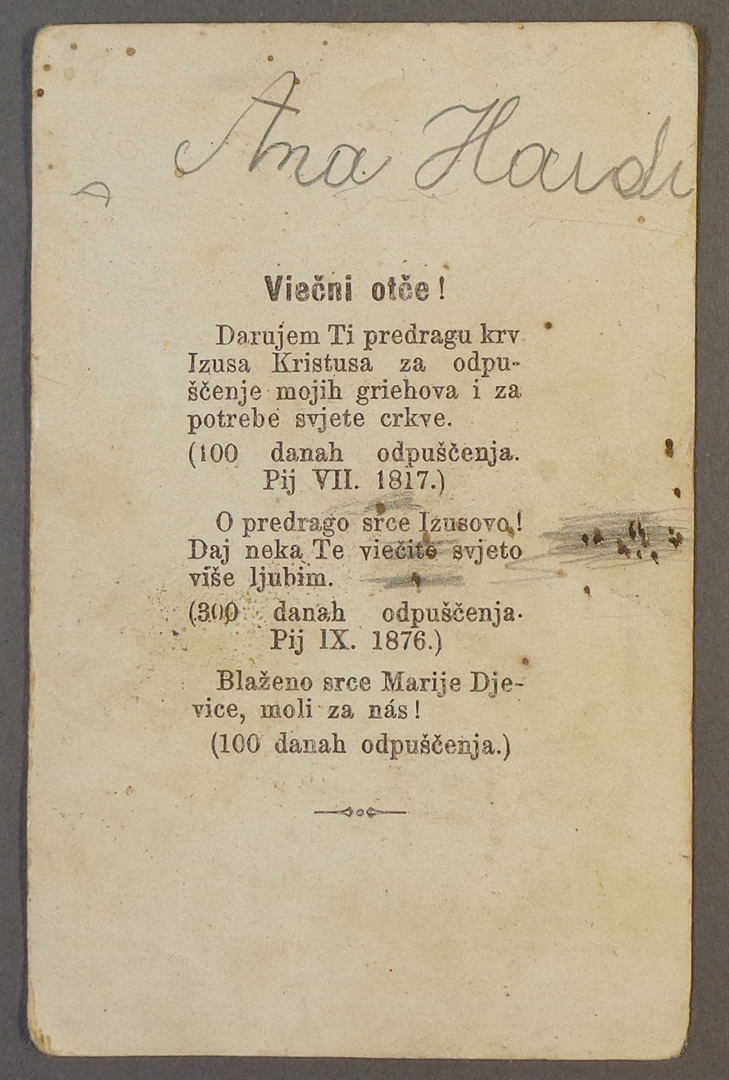 Ana Hardi
Viečni otče!
Darujem Ti predragu krv
Izusa Kristusa za odpu-
ščenje mojih griehova i za
potrebe svjete crkve.
(100 danah odpuščenja.
Pij VII. 1817.)
O predrago srce Izusovo!
Daj neka Te viečito svjeto
više ljubim.
(300 danah odpuščenja.
Pij IX. 1876.)
Blaženo srce Marije Dje-
vice, moli za nás!
(100 danah odpuščenja.)